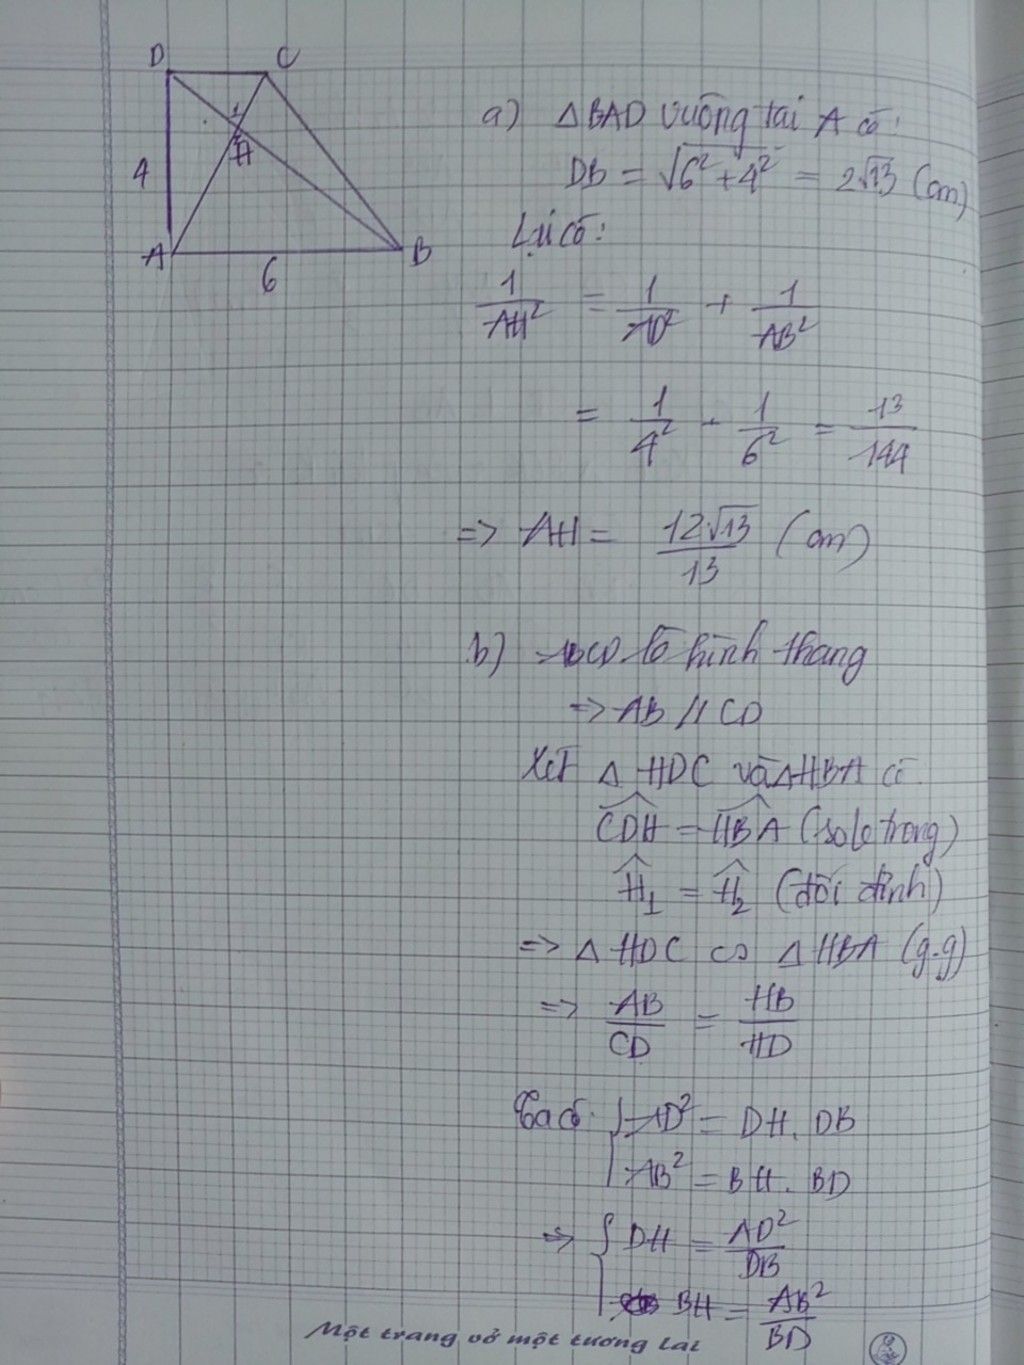 D C
1
H
4
A B
6
a) ΔBAD vuông tại A có:
DB = √(6² + 4²) = 2√13 (cm)
Lại có:
1/AH² = 1/AD² + 1/AB²
= 1/4² + 1/6² = 13/144
=> AH = 12√13/13 (cm)
b) ABCD là hình thang
=> AB // CD
Xét Δ HDC và Δ HBA có
CDH = HBA (so le trong)
H₁ = H₂ (đối đỉnh)
=> Δ HDC ∽ Δ HBA (g.g)
=> AB/CD = HB/HD
Ta có: { AD² = DH. DB
AB² = BH. BD
=> { DH = AD²/DB
BH = AB²/BD
Một trang vở một tương lai